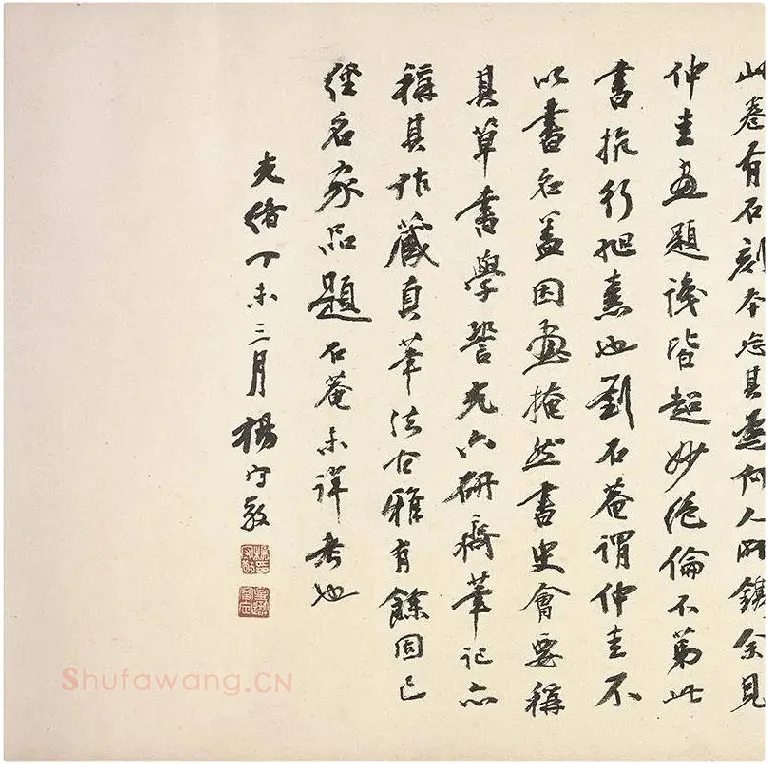 此卷有石刻本忘其為何人所鐫余見
仲圭畫題識皆超妙絕倫不第此
書抗行旭素也劉石菴謂仲圭不
以書名蓋因畫掩然書史會要稱
其草書學䛒光六研齋筆記亦
稱其作藏真筆法古雅有餘固已
經名家品題石菴未詳考也
光緒丁未三月楊守敬
Shufawang.CN